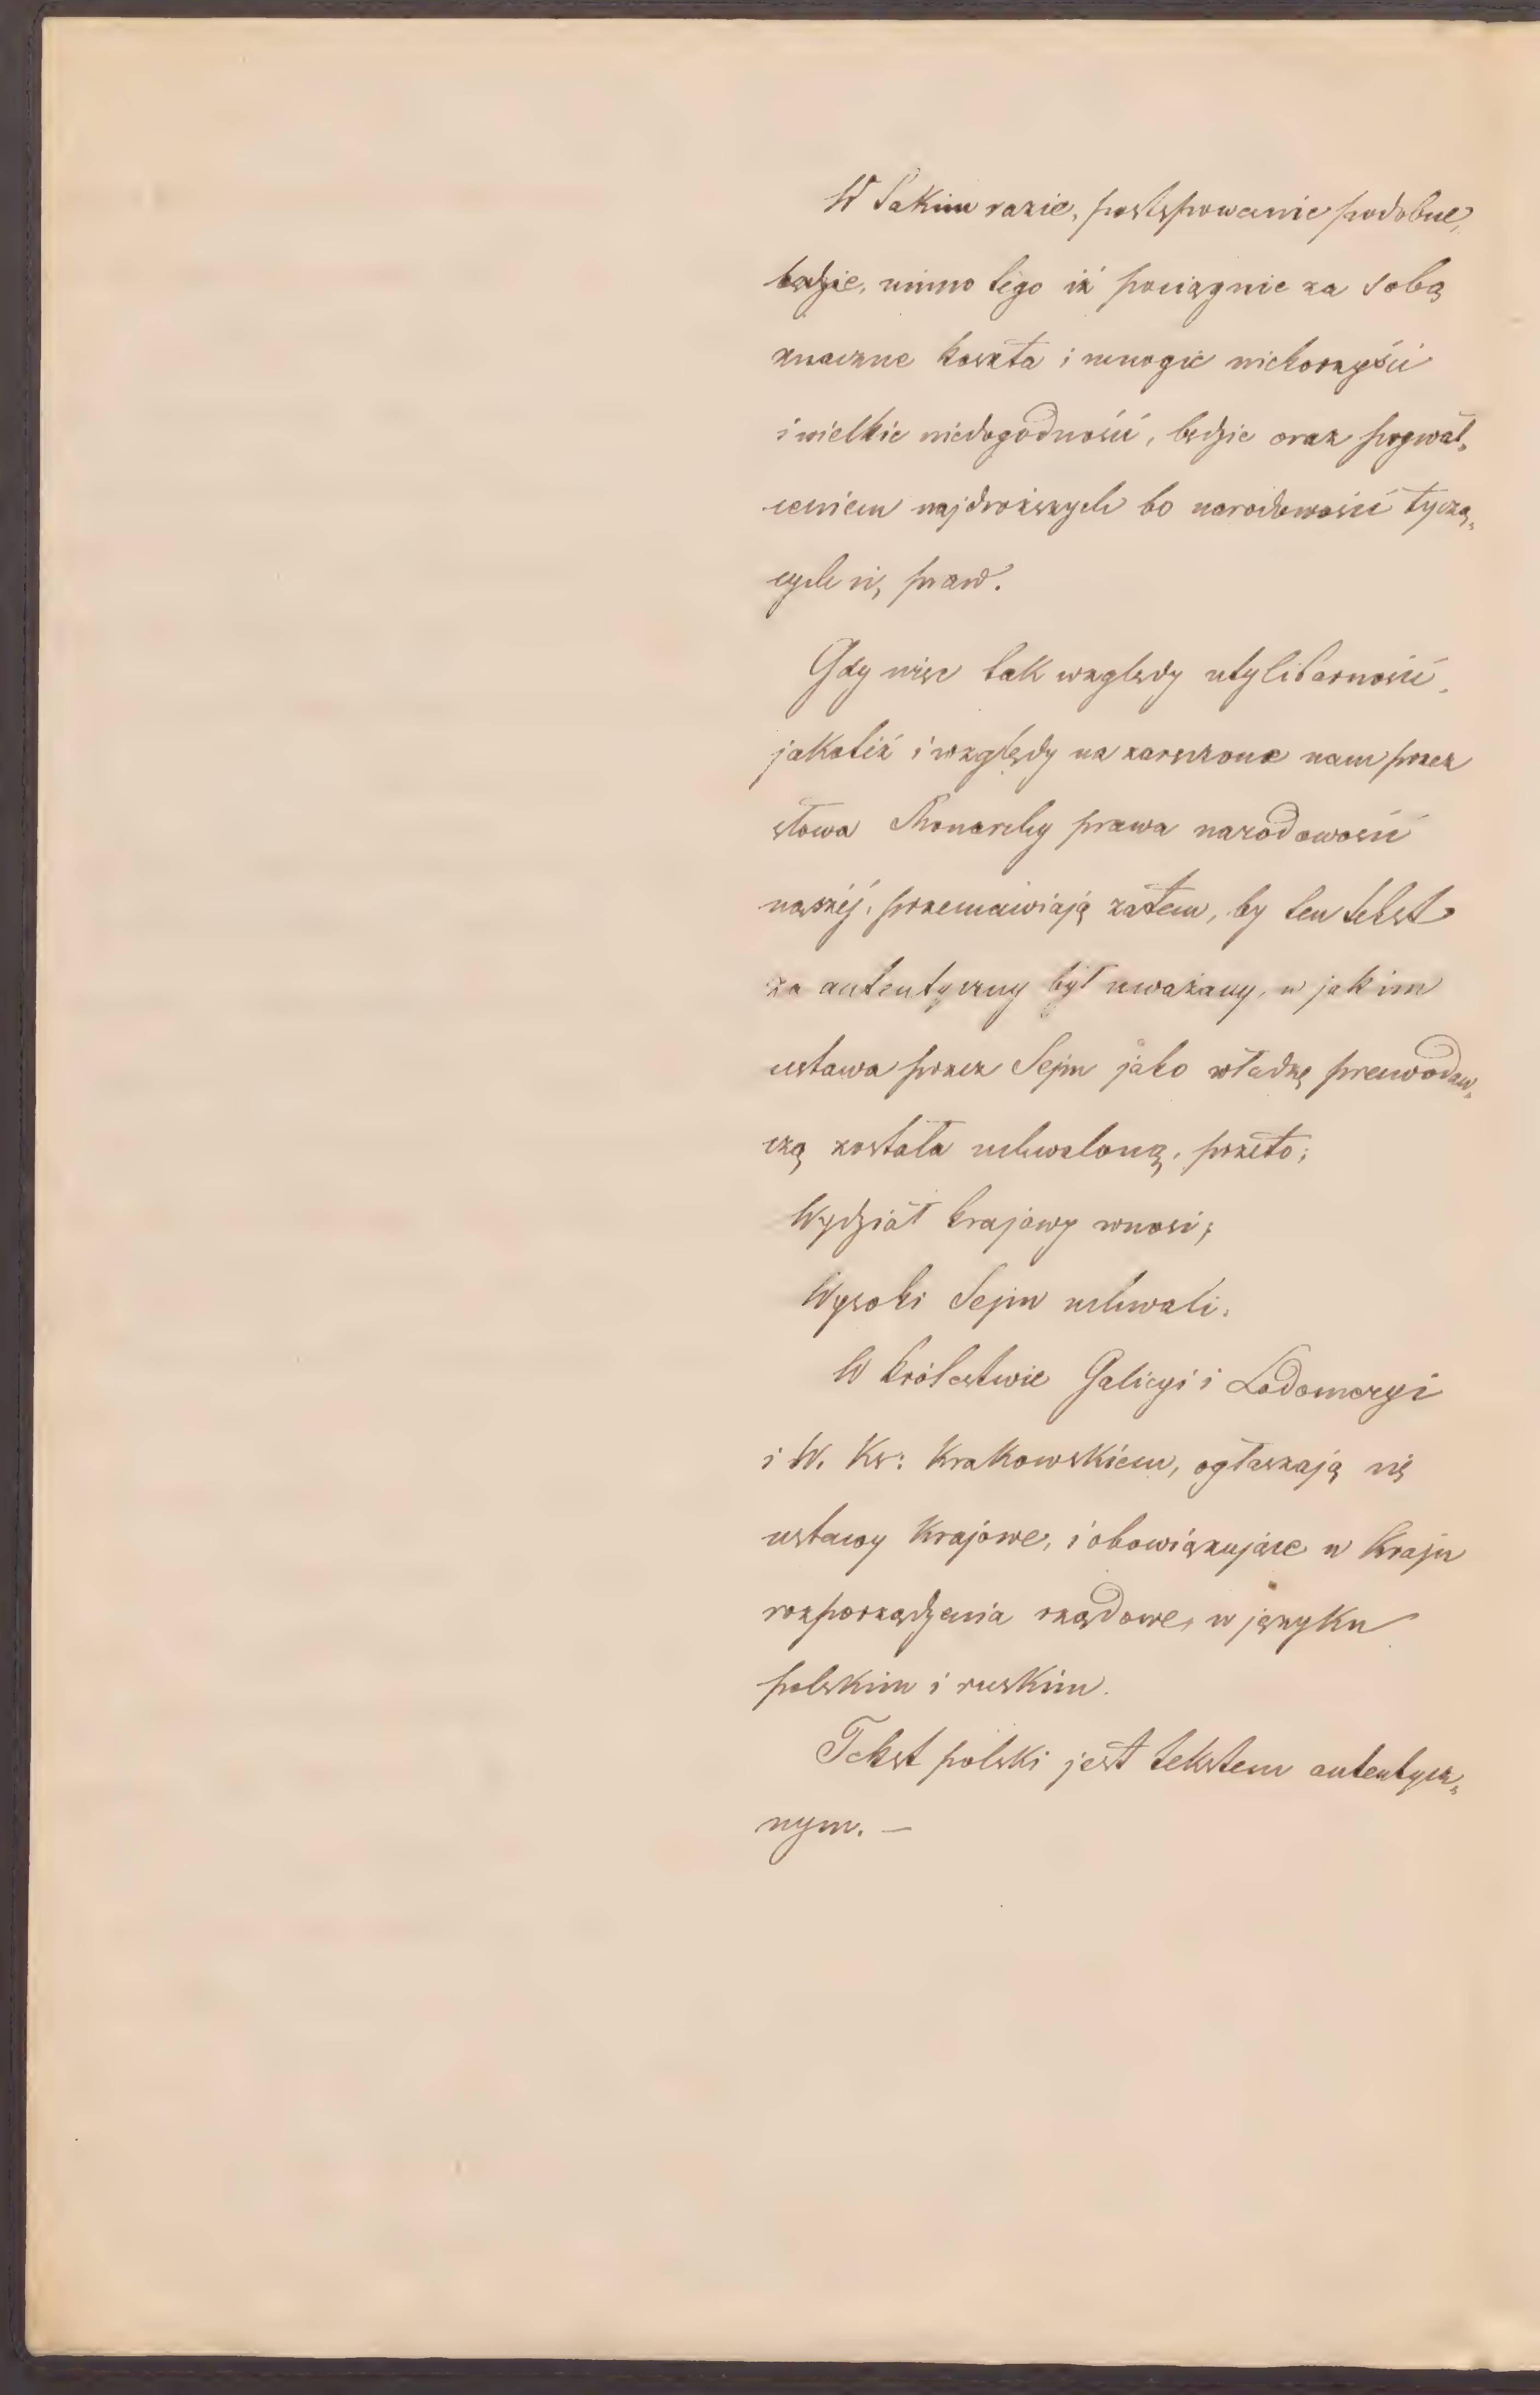 W takim razie, postępowanie podobne,
będzie, mimo tego iż pociągnie za sobą
znaczne koszta i mnogie niekorzyści
i wielkie niedogodności, będzie oraz pogwał„
ceniem najdroższych bo narodowości tyczą„
cych się praw.
Gdy więc tak względy utylitarności,
jakoteż i względy na zaręczone nam przez
słowa Monarchy prawa narodowości
naszéj, przemawiają zatem, by ten tekst
za autentyczny był uważany, w jakim
ustawa przez Sejm jako władzę prawodaw„
czą została uchwaloną, przeto;
Wydział krajowy wnosi;
Wysoki Sejm uchwali.
W królestwie Galicyi i Lodomeryi
i W. Ks: Krakowskiem, ogłaszają się
ustawy Krajowe, i obowiązujące w Kraju
rozporządzenia rządowe, w języku
polskim i ruskim.
Tekst polski jest tekstem autentycz„
nym. —